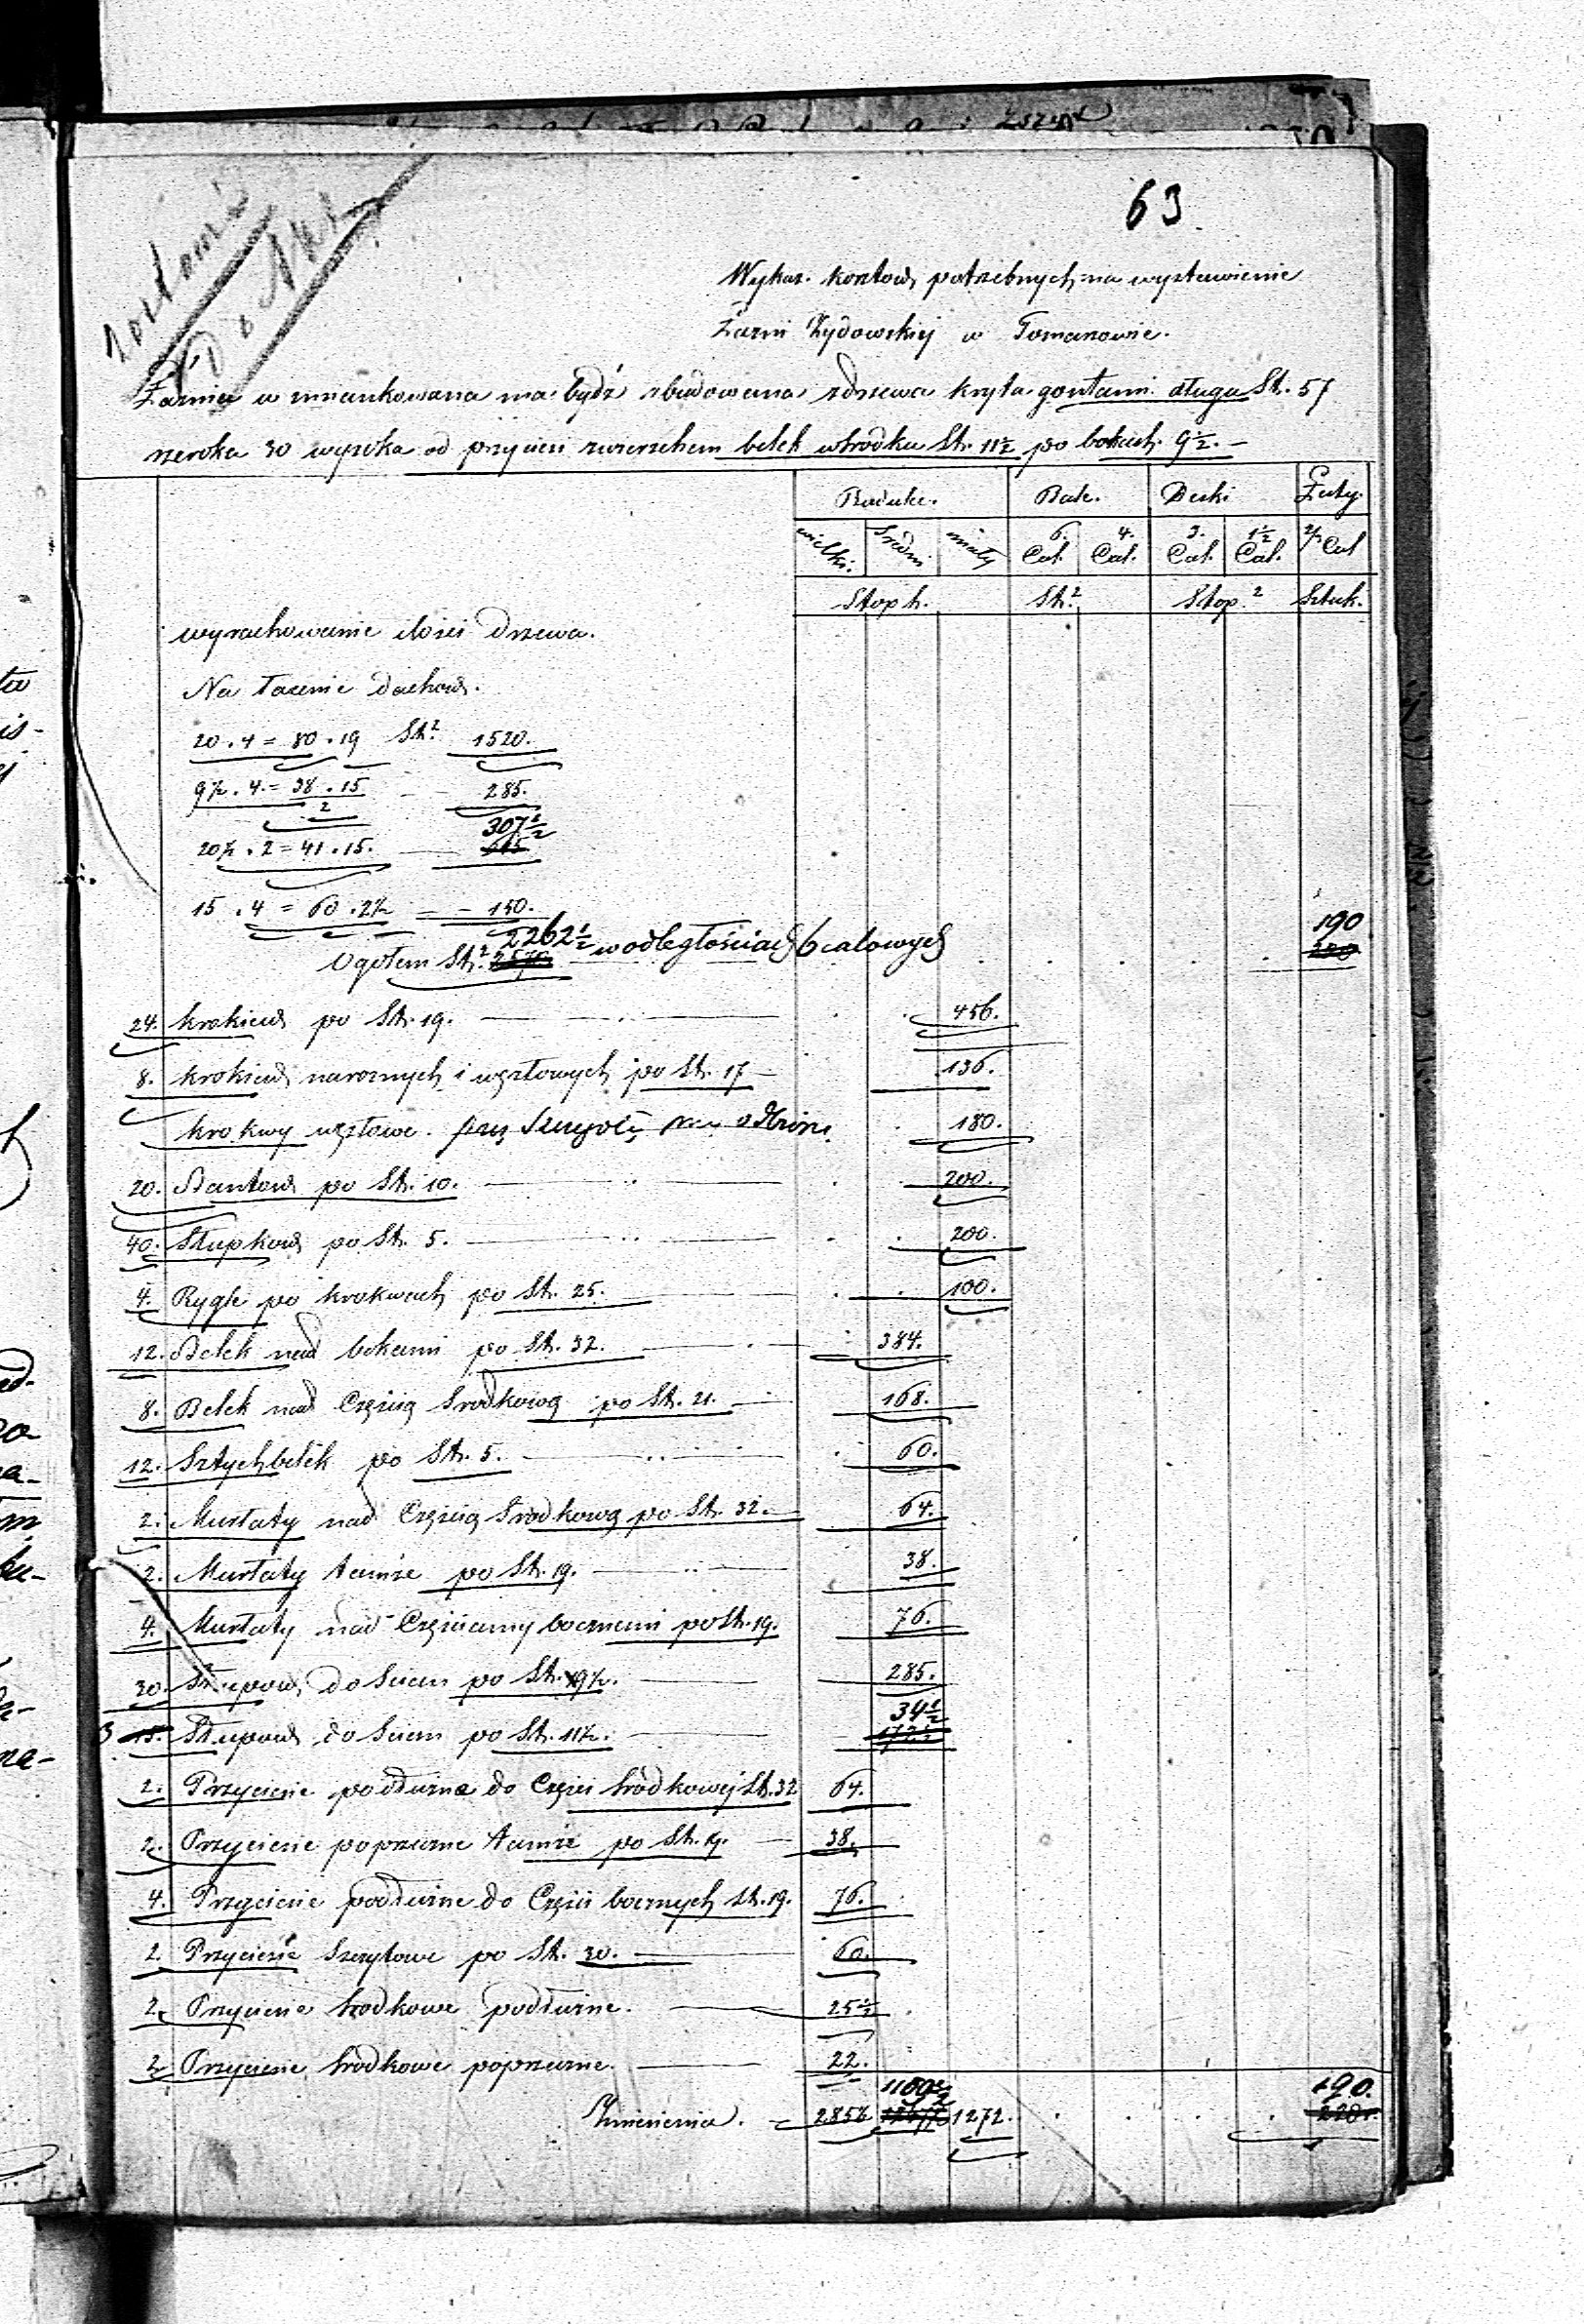 63.
Wykaz kosztów potrzebnych na wystawienie
Łazni Żydowskiej w Tomanowie.
Łaznia w mniankowana ma bydź zbudowana z drzewa kryta gontami długa St. 57
szeroka 30 wysoka od przyciesi z wierzchem belek w środku St. 11½ po bokach 9½. –
Balik. Deski Łaty.
wielki. średni mały 6. Cal. 4. Cal. 3. Cal. 1½ Cal. Cal
Stop h. St.² Stop.² Sztuk.
wyrachowanie ilości drzewa.
Na łacenie dachów.
20 . 4 = 80 . 19 St.² 1520.
9½ . 4. = 38 . 15. 285.
2
307½
20½ . 2 = 41 . 15. 615
15 . 4 = 60 . 2½ = 150.
2262½ 190
Ogółem St.² 2570 w odległościach 6 calowych
24. krokiew po St. 19. 456.
8. krokiew naroznych i węzłowych po St. 17 136.
krokwy węzłowe. 180.
20. Bantów po St. 10. 200.
40. Słupków po St. 5. 200.
4. Rygle po krokwach po St. 25. 100.
12. Belek nad bokami po St. 32. 384.
8. Belek nad Częścią Srodkową po St. 21. 168.
12. Sztychbelek po St. 5. 60.
2. Murłaty nad Częścią Srodkową po St. 32. 64.
2. Murłaty tamże po St. 19. 38.
4. Murłaty nad Częściamy bocznemi po St. 19. 76.
30. Słupów do Scian po St. 9½. 285.
34½
3 15. Słupów do Scian po St. 11½. 172½
2. Przyciesie podłużne do Części środkowej St. 32 64.
2. Przyciesie poprzeczne tamże po St. 19. 38.
4. Przyciesie podłużne do Części bocznych St. 19. 76.
2. Przyciesie Szczytowe po St. 30. 60.
2. Przyciesie środkowe podłużne. 25½
2 Przyciesie środkowe poprzeczne. 22.
1109½ 190.
= 285½ 1272. 220.